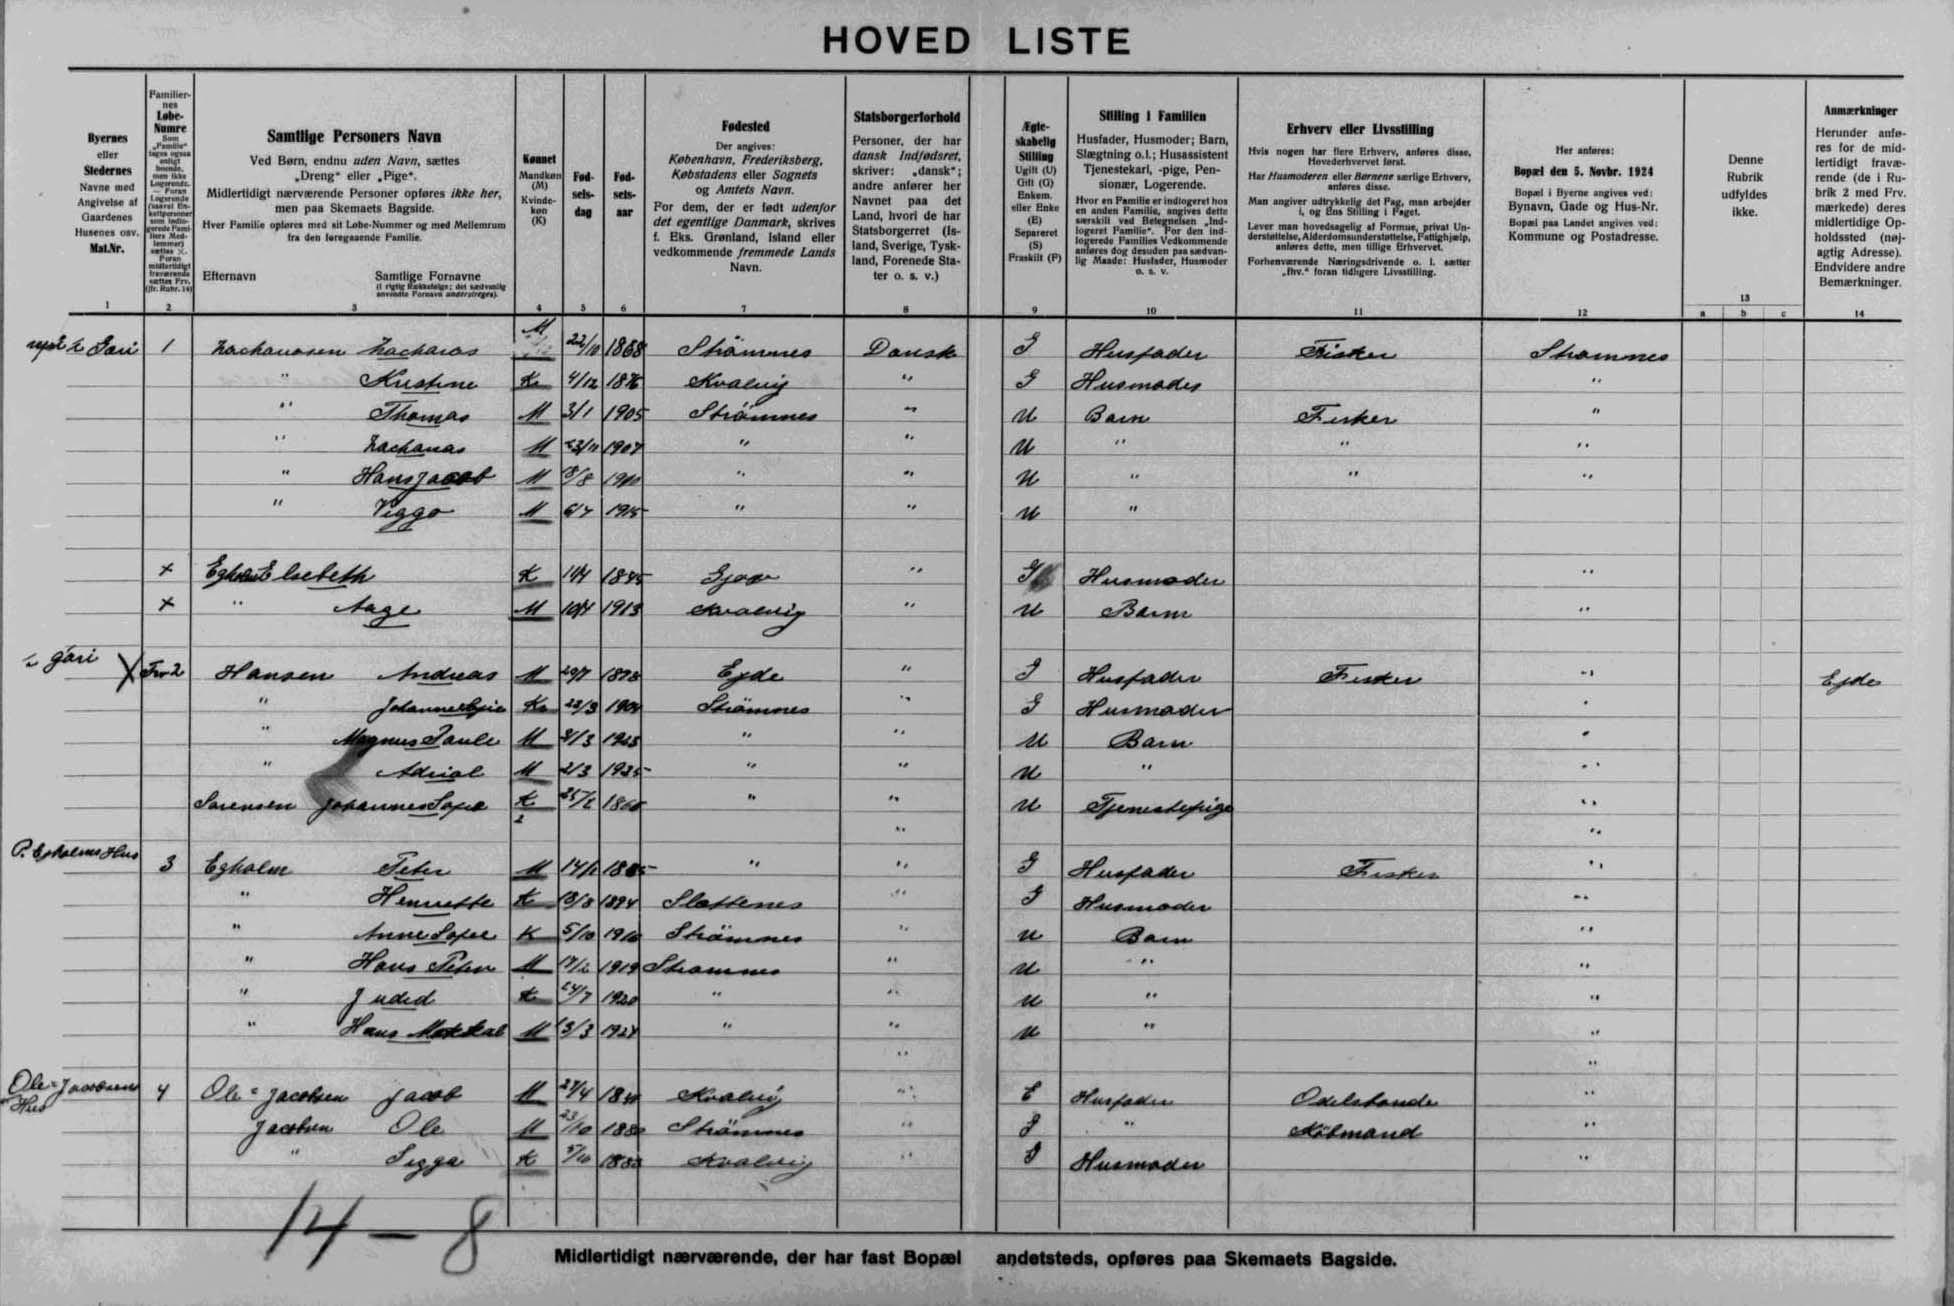 HOVED LISTE
Byernes
eller
Stedernes
Navne med
Angivelse af
Gaardenes
Husenes osv.
Mat.Nr.
1
Familier-
nes
Løbe-
Numre
2
Samtlige Personers Navn
Ved Børn, endnu uden Navn, sættes
„Dreng“ eller „Pige“.
Midlertidigt nærværende Personer opføres ikke her,
men paa Skemaets Bagside.
Hver Familie opføres med sit Løbe-Nummer og med Mellemrum
fra den foregaaende Familie.
Efternavn Samtlige Fornavne
(i rigtig Rækkefølge; det sædvanlig
anvendte Fornavn understreges).
3
Kønnet
Mandkøn
(M)
Kvinde-
køn
(K)
4
Fød-
sels-
dag
5
Fød-
sels-
aar
6
Fødested
Der angives:
København, Frederiksberg,
Købstadens eller Sognets
og Amtets Navn.
For dem, der er født udenfor
det egentlige Danmark, skrives
f. Eks. Grønland, Island eller
vedkommende fremmede Lands
Navn.
7
Statsborgerforhold
Personer, der har
dansk Indfødsret,
skriver: „dansk“;
andre anfører her
Navnet paa det
Land, hvori de har
Statsborgerret (Is-
land, Sverige, Tysk-
land, Forenede Sta-
ter o. s. v.)
8
Ægte-
skabelig
Stilling
Ugift (U)
Gift (G)
Enkem.
eller Enke
(E)
Separeret
(S)
Fraskilt (F)
9
Stilling i Familien
Husfader, Husmoder; Barn,
Slægtning o.l.; Husassistent
Tjenestekarl, -pige, Pen-
sionær, Logerende.
Hvor en Familie er indlogeret hos
en anden Familie, angives dette
særskilt ved Betegnelsen „Ind-
logeret Familie“. For den ind-
logerede Families Vedkommende
anføres dog desuden paa sædvan-
lig Maade: Husfader, Husmoder
o. s. v.
10
Erhverv eller Livsstilling
Hvis nogen har flere Erhverv, anføres disse,
Hovederhvervet først.
Har Husmoderen eller Børnene særlige Erhverv,
anføres disse.
Man angiver udtrykkelig det Fag, man arbejder
i, og Ens Stilling i Faget.
Lever man hovedsagelig af Formue, privat Un-
derstøttelse, Alderdomsunderstøttelse, Fattighjælp,
anføres dette, men tillige Erhvervet.
Forhenværende Næringsdrivende o. l. sætter
„fhv.“ foran tidligere Livsstilling.
11
Her anføres:
Bopæl den 5. Novbr. 1924
Bopæl i Byerne angives ved:
Bynavn, Gade og Hus-Nr.
Bopæl paa Landet angives ved:
Kommune og Postadresse.
12
Denne
Rubrik
udfyldes
ikke.
13
a b c
Anmærkninger
Herunder anfø-
res for de mid-
lertidigt fravæ-
rende (de i Ru-
brik 2 med Frv.
mærkede) deres
midlertidige Op-
holdssted (nøj-
agtig Adresse).
Endvidere andre
Bemærkninger.
14
Gari 1 Zachariasen Zacharias M 22/10 1868 Strömnes Dansk G Husfader Fisker Strömnes
" Kristine K 4/12 Kvalvig " G Husmoder "
" Thomas M 3/1 1905 Strömnes " U Barn Fisker "
" Zacharias M 1907 " " U " " "
" Hans Jacob M 8/8 " " U " " "
" Viggo M 6/7 1915 " " U "
+ Egholm Elsebeth K 1845 Gjov " G Husmoder "
+ " Aage M 1913 Kvalvig " U Barn "
Gari X Frv 2 Hansen Andreas M 1878 Ejde " G Husfader Fisker " Ejde
" K 22/3 1904 Strömnes " G Husmoder "
" Magnus Paule M 1923 " " U Barn "
" M 2/3 1925 " " U " "
Sørensen Johannes Sofie K " " U Tjenestepige "
P. Egholms Hus 3 Egholm Peter M " " G Husfader Fisker "
" Henriette K 1894 Slattenes " G Husmoder "
" Anne Sofie K 5/10 1910 Strömnes " U Barn "
" Hans Peter M 17/2 1919 Strömnes " U " "
" Judid K 24/7 1920 " " U " "
" Hans M 1924 " " U " "
Ole=Jacobsens Hus 4 Ole=Jacobsen Jacob M 27/4 Kvalvig " E Husfader Odelsbonde "
Jacobsen Ole M 23/10 1880 Strömnes " G " Købmand "
" Sigga K 5/10 1883 Kvalvig " G Husmoder "
14 – 8
Midlertidigt nærværende, der har fast Bopæl andetsteds, opføres paa Skemaets Bagside.